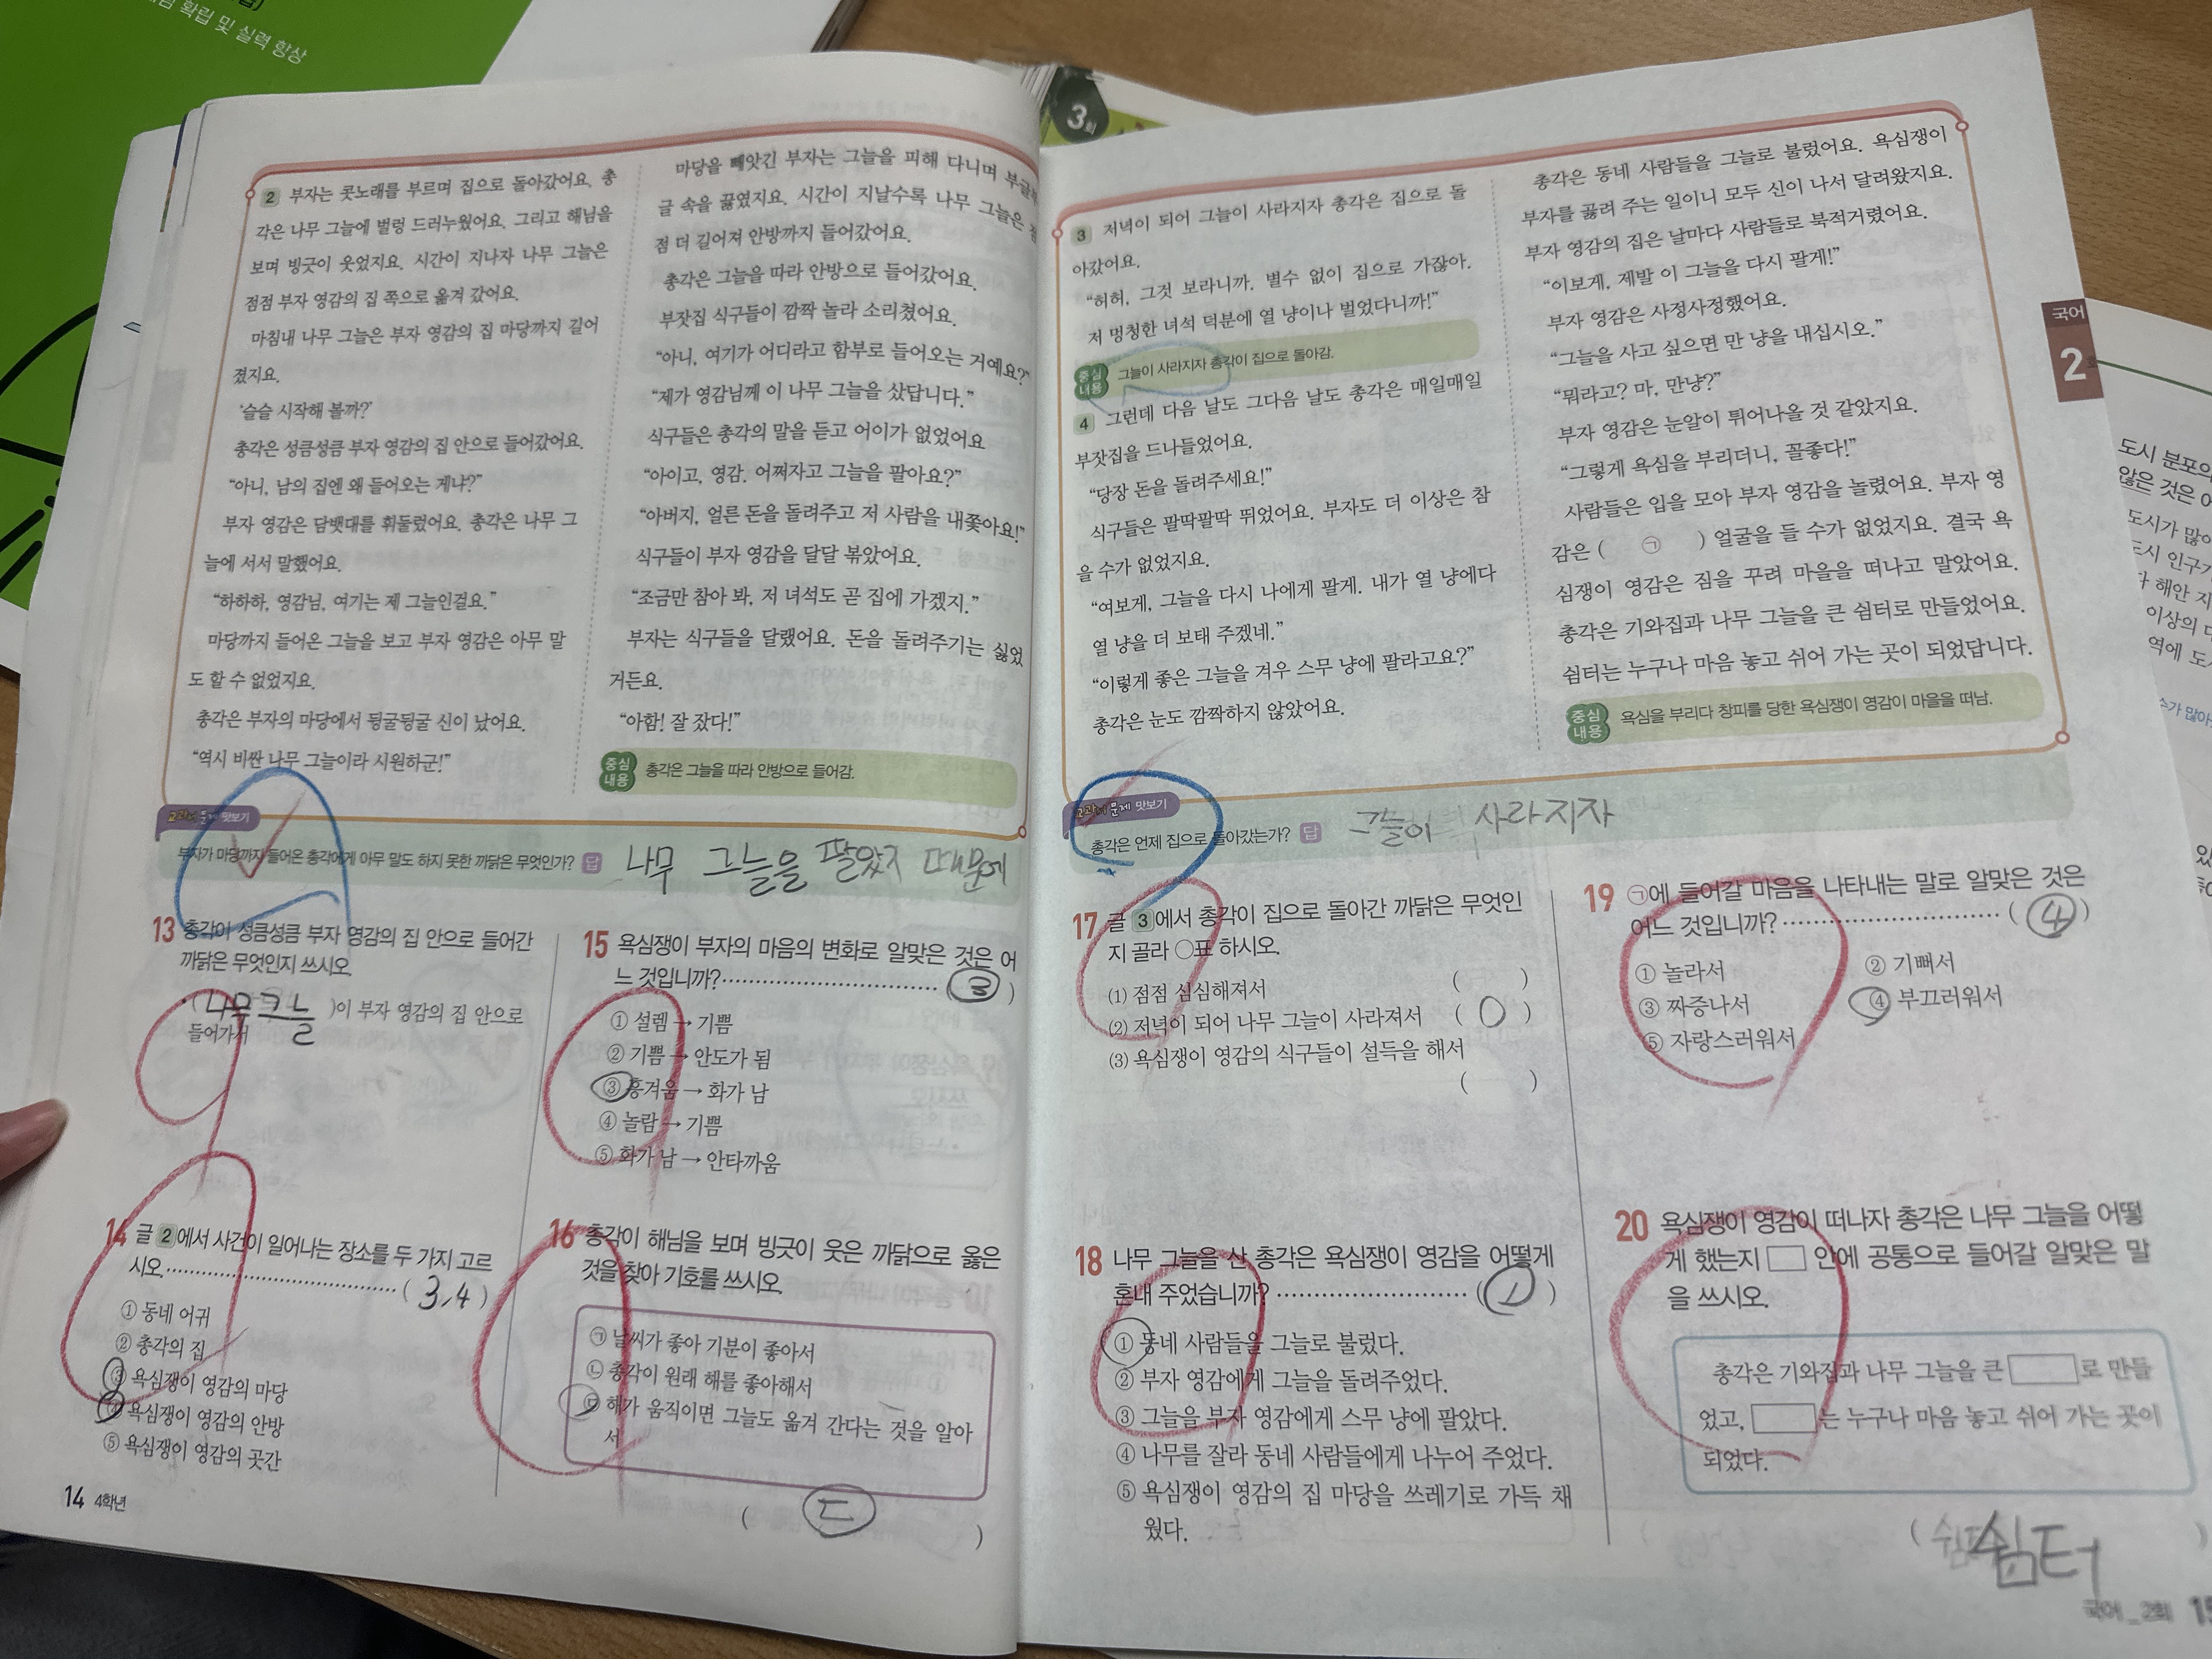 확립 및 실력 향상
3회
2 부자는 콧노래를 부르며 집으로 돌아갔어요. 총
각은 나무 그늘에 벌렁 드러누웠어요. 그리고 해님을
보며 빙긋이 웃었지요. 시간이 지나자 나무 그늘은
점점 부자 영감의 집 쪽으로 옮겨 갔어요.
마침내 나무 그늘은 부자 영감의 집 마당까지 길어
졌지요.
‘슬슬 시작해 볼까?’
총각은 성큼성큼 부자 영감의 집 안으로 들어갔어요.
“아니, 남의 집엔 왜 들어오는 게냐?”
부자 영감은 담뱃대를 휘둘렀어요. 총각은 나무 그
늘에 서서 말했어요.
“하하하, 영감님, 여기는 제 그늘인걸요.”
마당까지 들어온 그늘을 보고 부자 영감은 아무 말
도 할 수 없었지요.
총각은 부자의 마당에서 뒹굴뒹굴 신이 났어요.
“역시 비싼 나무 그늘이라 시원하군!”
마당을 빼앗긴 부자는 그늘을 피해 다니며 부글
글 속을 끓였지요. 시간이 지날수록 나무 그늘은
점 더 길어져 안방까지 들어갔어요.
총각은 그늘을 따라 안방으로 들어갔어요.
부잣집 식구들이 깜짝 놀라 소리쳤어요.
“아니, 여기가 어디라고 함부로 들어오는 거예요?”
“제가 영감님께 이 나무 그늘을 샀답니다.”
식구들은 총각의 말을 듣고 어이가 없었어요
“아이고, 영감. 어쩌자고 그늘을 팔아요?”
“아버지, 얼른 돈을 돌려주고 저 사람을 내쫓아요!”
식구들이 부자 영감을 달달 볶았어요.
“조금만 참아 봐. 저 녀석도 곧 집에 가겠지.”
부자는 식구들을 달랬어요. 돈을 돌려주기는 싫었
거든요.
“아함! 잘 잤다!”
중심내용 총각은 그늘을 따라 안방으로 들어감.
교과서 문제 맛보기
부자가 마당까지 들어온 총각에게 아무 말도 하지 못한 까닭은 무엇인가? 답 나무 그늘을 팔았지 때문에
13 총각이 성큼성큼 부자 영감의 집 안으로 들어간
까닭은 무엇인지 쓰시오.
• ( 나무그늘 )이 부자 영감의 집 안으로
들어가서
14 글 2에서 사건이 일어나는 장소를 두 가지 고르
시오. ( 3,4 )
① 동네 어귀
② 총각의 집
③ 욕심쟁이 영감의 마당
④ 욕심쟁이 영감의 안방
⑤ 욕심쟁이 영감의 곳간
14 4학년
15 욕심쟁이 부자의 마음의 변화로 알맞은 것은 어
느 것입니까? ( 3 )
① 설렘 → 기쁨
② 기쁨 → 안도가 됨
③ 흥겨움 → 화가 남
④ 놀람 → 기쁨
⑤ 화가 남 → 안타까움
16 총각이 해님을 보며 빙긋이 웃은 까닭으로 옳은
것을 찾아 기호를 쓰시오.
㉠ 날씨가 좋아 기분이 좋아서
㉡ 총각이 원래 해를 좋아해서
㉢ 해가 움직이면 그늘도 옮겨 간다는 것을 알아
서
( ㄷ )
3 저녁이 되어 그늘이 사라지자 총각은 집으로 돌
아갔어요.
“허허, 그것 보라니까. 별수 없이 집으로 가잖아.
저 멍청한 녀석 덕분에 열 냥이나 벌었다니까!”
중심내용 그늘이 사라지자 총각이 집으로 돌아감.
4 그런데 다음 날도 그다음 날도 총각은 매일매일
부잣집을 드나들었어요.
“당장 돈을 돌려주세요!”
식구들은 팔딱팔딱 뛰었어요. 부자도 더 이상은 참
을 수가 없었지요.
“여보게, 그늘을 다시 나에게 팔게. 내가 열 냥에다
열 냥을 더 보태 주겠네.”
“이렇게 좋은 그늘을 겨우 스무 냥에 팔라고요?”
총각은 눈도 깜짝하지 않았어요.
총각은 동네 사람들을 그늘로 불렀어요. 욕심쟁이
부자를 골려 주는 일이니 모두 신이 나서 달려왔지요.
부자 영감의 집은 날마다 사람들로 북적거렸어요.
“이보게, 제발 이 그늘을 다시 팔게!”
부자 영감은 사정사정했어요.
“그늘을 사고 싶으면 만 냥을 내십시오.”
“뭐라고? 마, 만냥?”
부자 영감은 눈알이 튀어나올 것 같았지요.
“그렇게 욕심을 부리더니, 꼴좋다!”
사람들은 입을 모아 부자 영감을 놀렸어요. 부자 영
감은 ( ㉠ ) 얼굴을 들 수가 없었지요. 결국 욕
심쟁이 영감은 짐을 꾸려 마을을 떠나고 말았어요.
총각은 기와집과 나무 그늘을 큰 쉼터로 만들었어요.
쉼터는 누구나 마음 놓고 쉬어 가는 곳이 되었답니다.
중심내용 욕심을 부리다 창피를 당한 욕심쟁이 영감이 마을을 떠남.
교과서 문제 맛보기
총각은 언제 집으로 돌아갔는가? 답 그늘이 사라지자
17 글 3에서 총각이 집으로 돌아간 까닭은 무엇인
지 골라 ○표 하시오.
(1) 점점 심심해져서 ( )
(2) 저녁이 되어 나무 그늘이 사라져서 ( ○ )
(3) 욕심쟁이 영감의 식구들이 설득을 해서
( )
18 나무 그늘을 산 총각은 욕심쟁이 영감을 어떻게
혼내 주었습니까? ( 1 )
① 동네 사람들을 그늘로 불렀다.
② 부자 영감에게 그늘을 돌려주었다.
③ 그늘을 부자 영감에게 스무 냥에 팔았다.
④ 나무를 잘라 동네 사람들에게 나누어 주었다.
⑤ 욕심쟁이 영감의 집 마당을 쓰레기로 가득 채
웠다.
19 ㉠에 들어갈 마음을 나타내는 말로 알맞은 것은
어느 것입니까? ( 4 )
① 놀라서 ② 기뻐서
③ 짜증나서 ④ 부끄러워서
⑤ 자랑스러워서
20 욕심쟁이 영감이 떠나자 총각은 나무 그늘을 어떻
게 했는지 □ 안에 공통으로 들어갈 알맞은 말
을 쓰시오.
총각은 기와집과 나무 그늘을 큰 □로 만들
었고, □는 누구나 마음 놓고 쉬어 가는 곳이
되었다.
( 쉼터 )
국어_2회 15
국어
2
도시 분포의
않은 것은
도시가 많
도시 인구
해안 지
이상의
역에 도
수가 많아